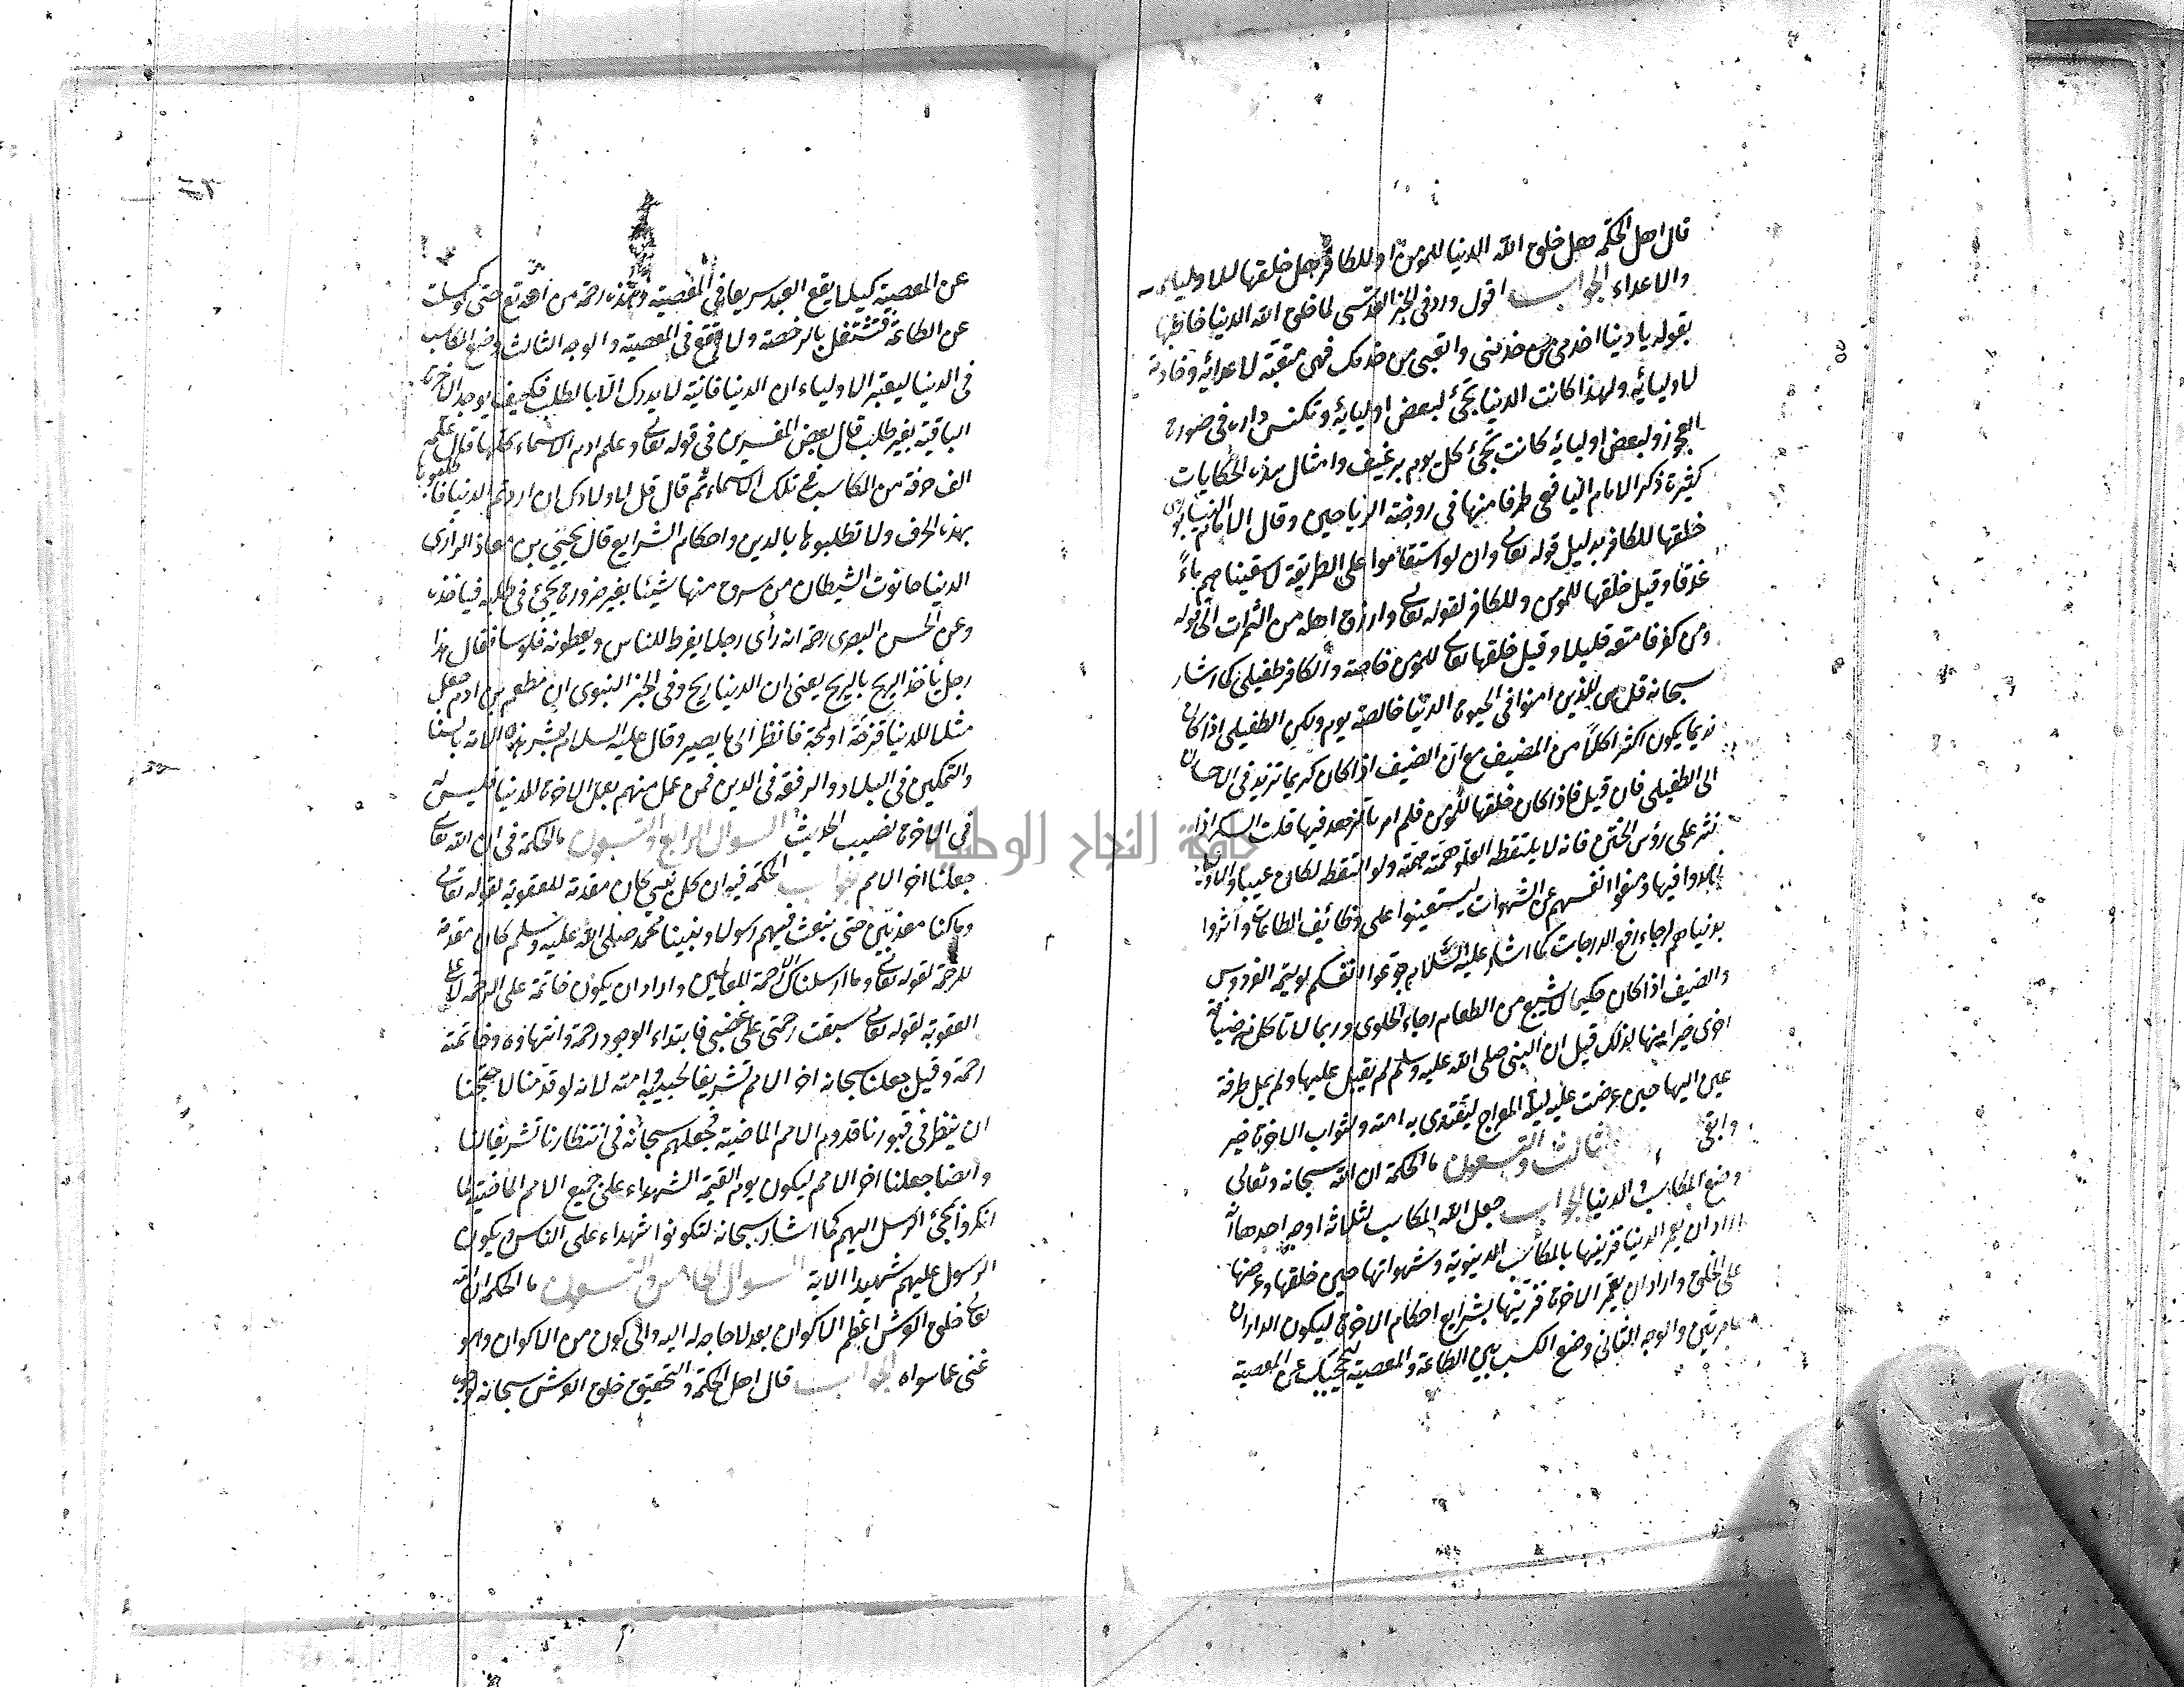 قال اهل الحكمة هل خلق الله الدنيا للمؤمن او للكافر وهل خلقها للاولياء
والاعداء الجواب اقول ورد في الخبر القدسي لما خلق الله الدنيا خاطبها
بقوله يا دنيا اخدمي من خدمني واتعبي من خدمك فهي متعبة لاعدائه وخادمة
لاوليائه ولهذا كانت الدنيا تجئ لبعض اوليائه وتكنس داره في صورة
العجوز ولبعض اوليائه كانت تجئ كل يوم برغيف وامثال هذه الحكايات
كثيرة ذكر الامام اليافعي طرفا منها في روضة الرياحين وقال الامام النيسابوري
خلقها للكافر بدليل قوله تعالى وان لو استقاموا على الطريقة لاسقيناهم ماءً
غدقا وقيل خلقها للمؤمن وللكافر لقوله تعالى وارزق اهله من الثمرات الى قوله
ومن كفر فامتعه قليلا وقيل خلقها تعالى للمؤمن خاصة والكافر طفيلي كما اشار
سبحانه قل هي للذين امنوا في الحيوة الدنيا خالصة يوم ولكن الطفيلي اذا كان
نديما يكون اكثر اكلاً من المضيف مع ان الضيف اذا كان كريما تزيد في الاحسان
الى الطفيلي فان قيل فاذا كان خلقها للمؤمن فلم امر بالزهد فيها قلت السكر اذا
نثر على رؤس الختن فانه لا يلتقطه لعلو همته ولو التقطه لكان عيبا
زهدوا فيها ومنعوا انفسهم عن الشهوات ليستعينوا على وظائف الطاعات واثروا
بدنياهم لرجاء رفع الدرجات كما اشار عليه السلام جوعوا انفسكم لوليمة الفردوس
والضيف اذا كان حكيما لا يشبع من الطعام رجاء الحلوى وربما لا تاكل من ضيافة
اخرى خيرا منها لذلك قيل ان النبي صلى الله عليه وسلم لم يقبل عليها ولم يمل طرفة
عين اليها حين عرضت عليه ليلة المعراج ليقتدى به امته وثواب الاخرة خير
وابقى الثالث والتسعون ما الحكمة ان الله سبحانه وتعالى
وضع المكاسب في الدنيا الجواب جعل الله المكاسب لثلاثة اوجه احدها انه
اراد ان يعمر الدنيا فزينها بالمكاسب الدنيوية وشهواتها حين خلقها وعرضها
على الخلق واراد ان يعمر الاخرة فزينها بشرايع احكام الاخرة ليكون الداران
عامرتين والوجه الثاني وضع الكسب بين الطاعة والمعصية ليحجبك عن المعصية
عن المعصية كيلا يقع العبد سريعا في المعصية وهذه رحمة من الله تعالى حتى لو كسلت
عن الطاعة فتشتغل بالرخصة ولا تقع في المعصية والوجه الثالث وضع المكاسب
في الدنيا ليعتبر الاولياء ان الدنيا فانية لا يدرك الا بالطلب فكيف يوجد الاخرة
الباقية بغير طلب قال بعض المفسرين في قوله تعالى وعلم ادم الاسماء كلها قال علمه
الف حرفة من المكاسب في تلك الاسماء ثم قال قل لاولادك ان اردتم الدنيا فاطلبوها
بهذه الحرف ولا تطلبوها بالدين واحكام الشرايع قال يحيى بن معاذ الرازي
الدنيا حانوت الشيطان من سرق منها شيئا بغير ضرورة يجئ في طلبه فياخذه
وعن الحسن البصري رحمه انه رأى رجلا يفرط للناس ويعطونه فلوسا فقال هذا
رجل يأخذ الريح بالريح يعني ان الدنيا ريح وفي الخبر النبوي ان مطعم بن ادم جعل
مثلا للدنيا فانظر الى ما يصير وقال عليه السلام بشر هذه الامة بالسنا
والتمكين في البلاد والرفعة في الدين فمن عمل منهم بعمل الاخرة للدنيا فليس له
في الاخرة نصيب الحديث السوال الرابع والتسعون ما الحكمة في ان الله تعالى
جعلنا اخر الامم الجواب الحكمة فيه ان كل نبي كان مقدمة للعقوبة لقوله تعالى
وما كنا معذبين حتى نبعث فيهم رسولا ونبينا محمد صلى الله عليه وسلم كان مقدمة
للرحمة لقوله تعالى وما ارسلناك الا رحمة للعالمين واراد ان يكون خاتمة على الرحمة لا على
العقوبة لقوله تعالى سبقت رحمتي على غضبي فابتداء الوجود رحمة وانتهاوه وخاتمته
رحمة وقيل جعلنا سبحانه اخر الامم تشريفا لحبيبه وامته لانه لو قدمنا لاحتجنا
ان ينظر في قبورنا قدوم الامم الماضية فجعلهم سبحانه في انتظارنا تشريفا لنا
وايضا جعلنا اخر الامم ليكون يوم القيمة الشهداء على جميع الامم الماضية لما
انكروا مجئ الرسل اليهم كما اشار سبحانه لتكونوا شهداء على الناس ويكون
الرسول عليهم شهيدا الاية السوال الخامس والتسعون ما الحكمة ان الله
تعالى خلق العرش اعظم الاكوان بعد لا حاجة له اليه والى كون من الاكوان وهو
غني عما سواه الجواب قال اهل الحكمة والتحقيق خلق العرش سبحانه لوجوه
جامعة النجاح الوطنية